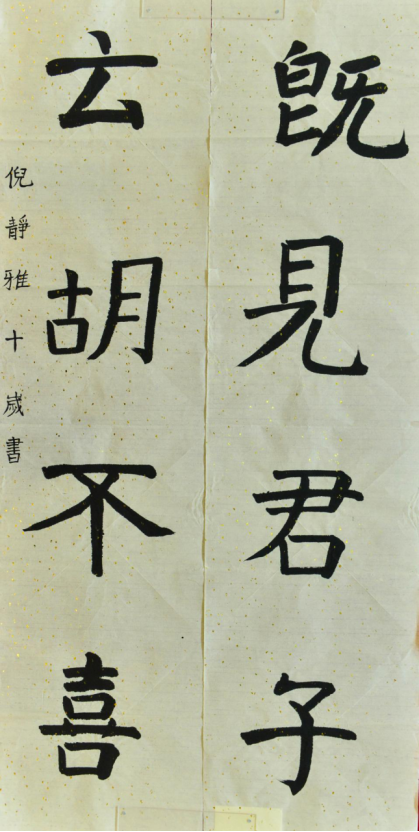 既見君子
云胡不喜
倪靜雅十歲書